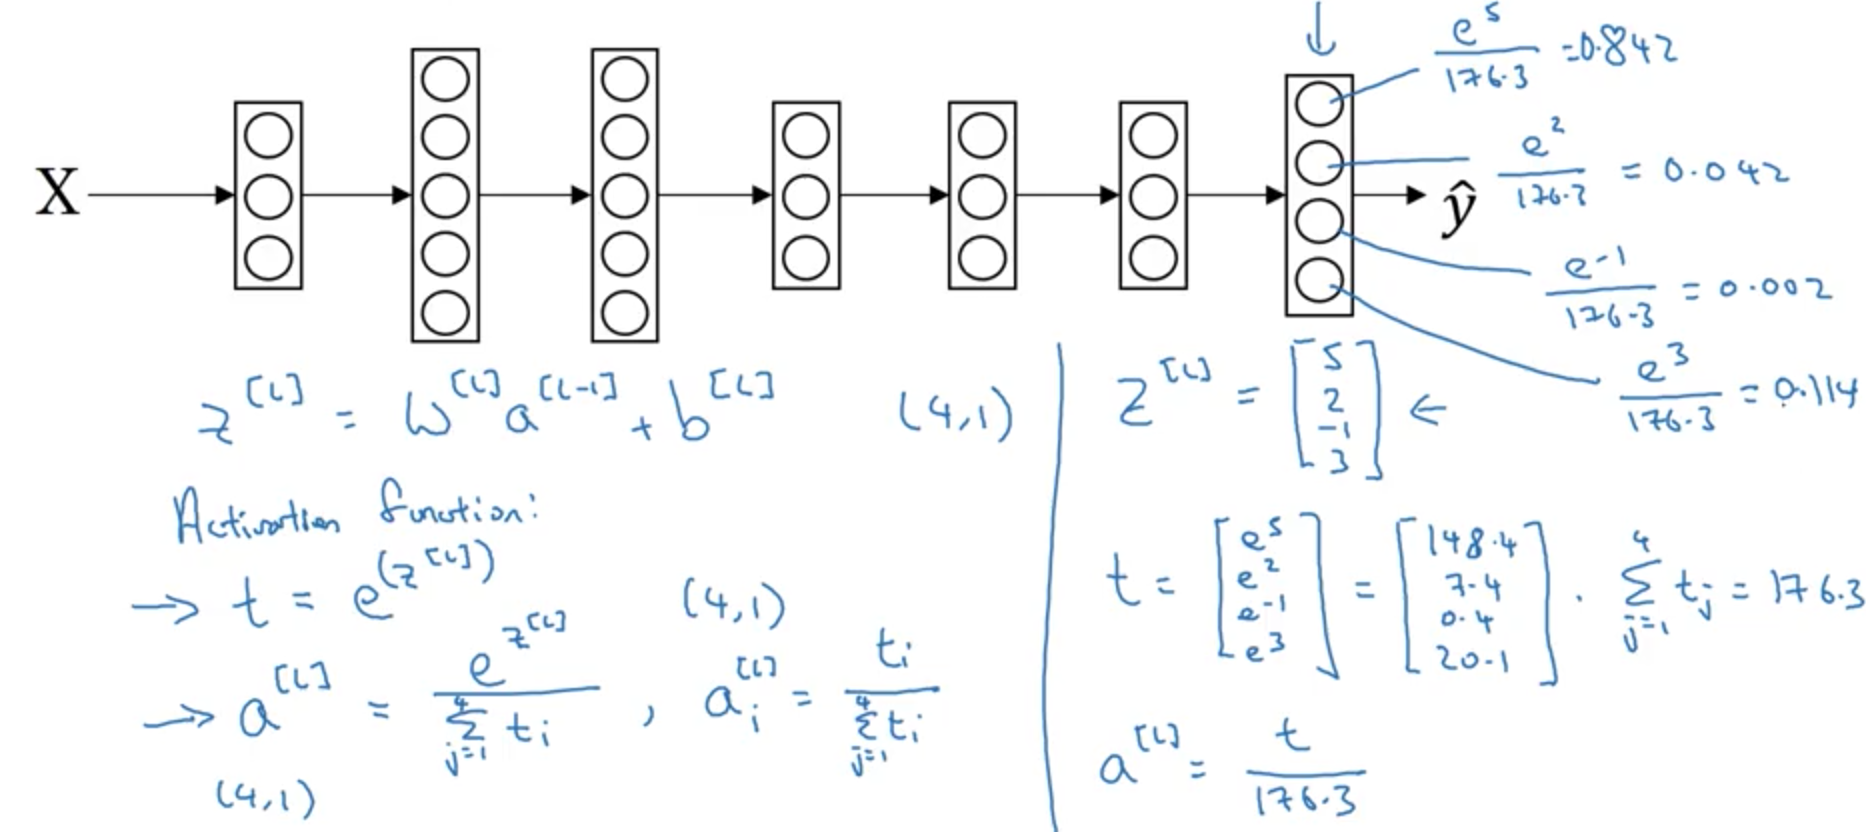 e^5 / 176.3 = 0.842
X
e^2 / 176.3 = 0.042
ŷ
e^-1 / 176.3 = 0.002
e^3 / 176.3 = 0.114
z^[L] = W^[L] a^[L-1] + b^[L] (4,1)
Activation function:
→ t = e^(z^[L]) (4,1)
→ a^[L] = e^z^[L] / ∑_{j=1}^4 t_i , a_i^[L] = t_i / ∑_{j=1}^4 t_i
(4,1)
z^[L] = [5 2 -1 3] ←
t = [e^5 e^2 e^-1 e^3] = [148.4 7.4 0.4 20.1] . ∑_{j=1}^4 t_j = 176.3
a^[L] = t / 176.3